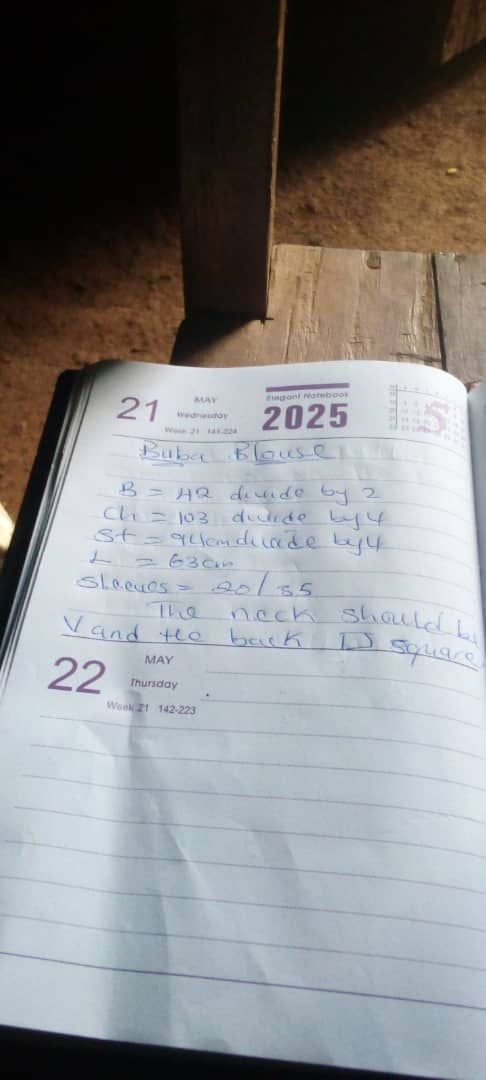 21 MAY Wednesday Week 21 141-224
Elegant Notebook
2025
Buba Blouse
B = 42 divide by 2
Ch = 103 divide by 4
St = 94cm divide by 4
L = 63cm
Sleeves = 20/35
The neck should be
V and the back square
22 MAY Thursday Week 21 142-223